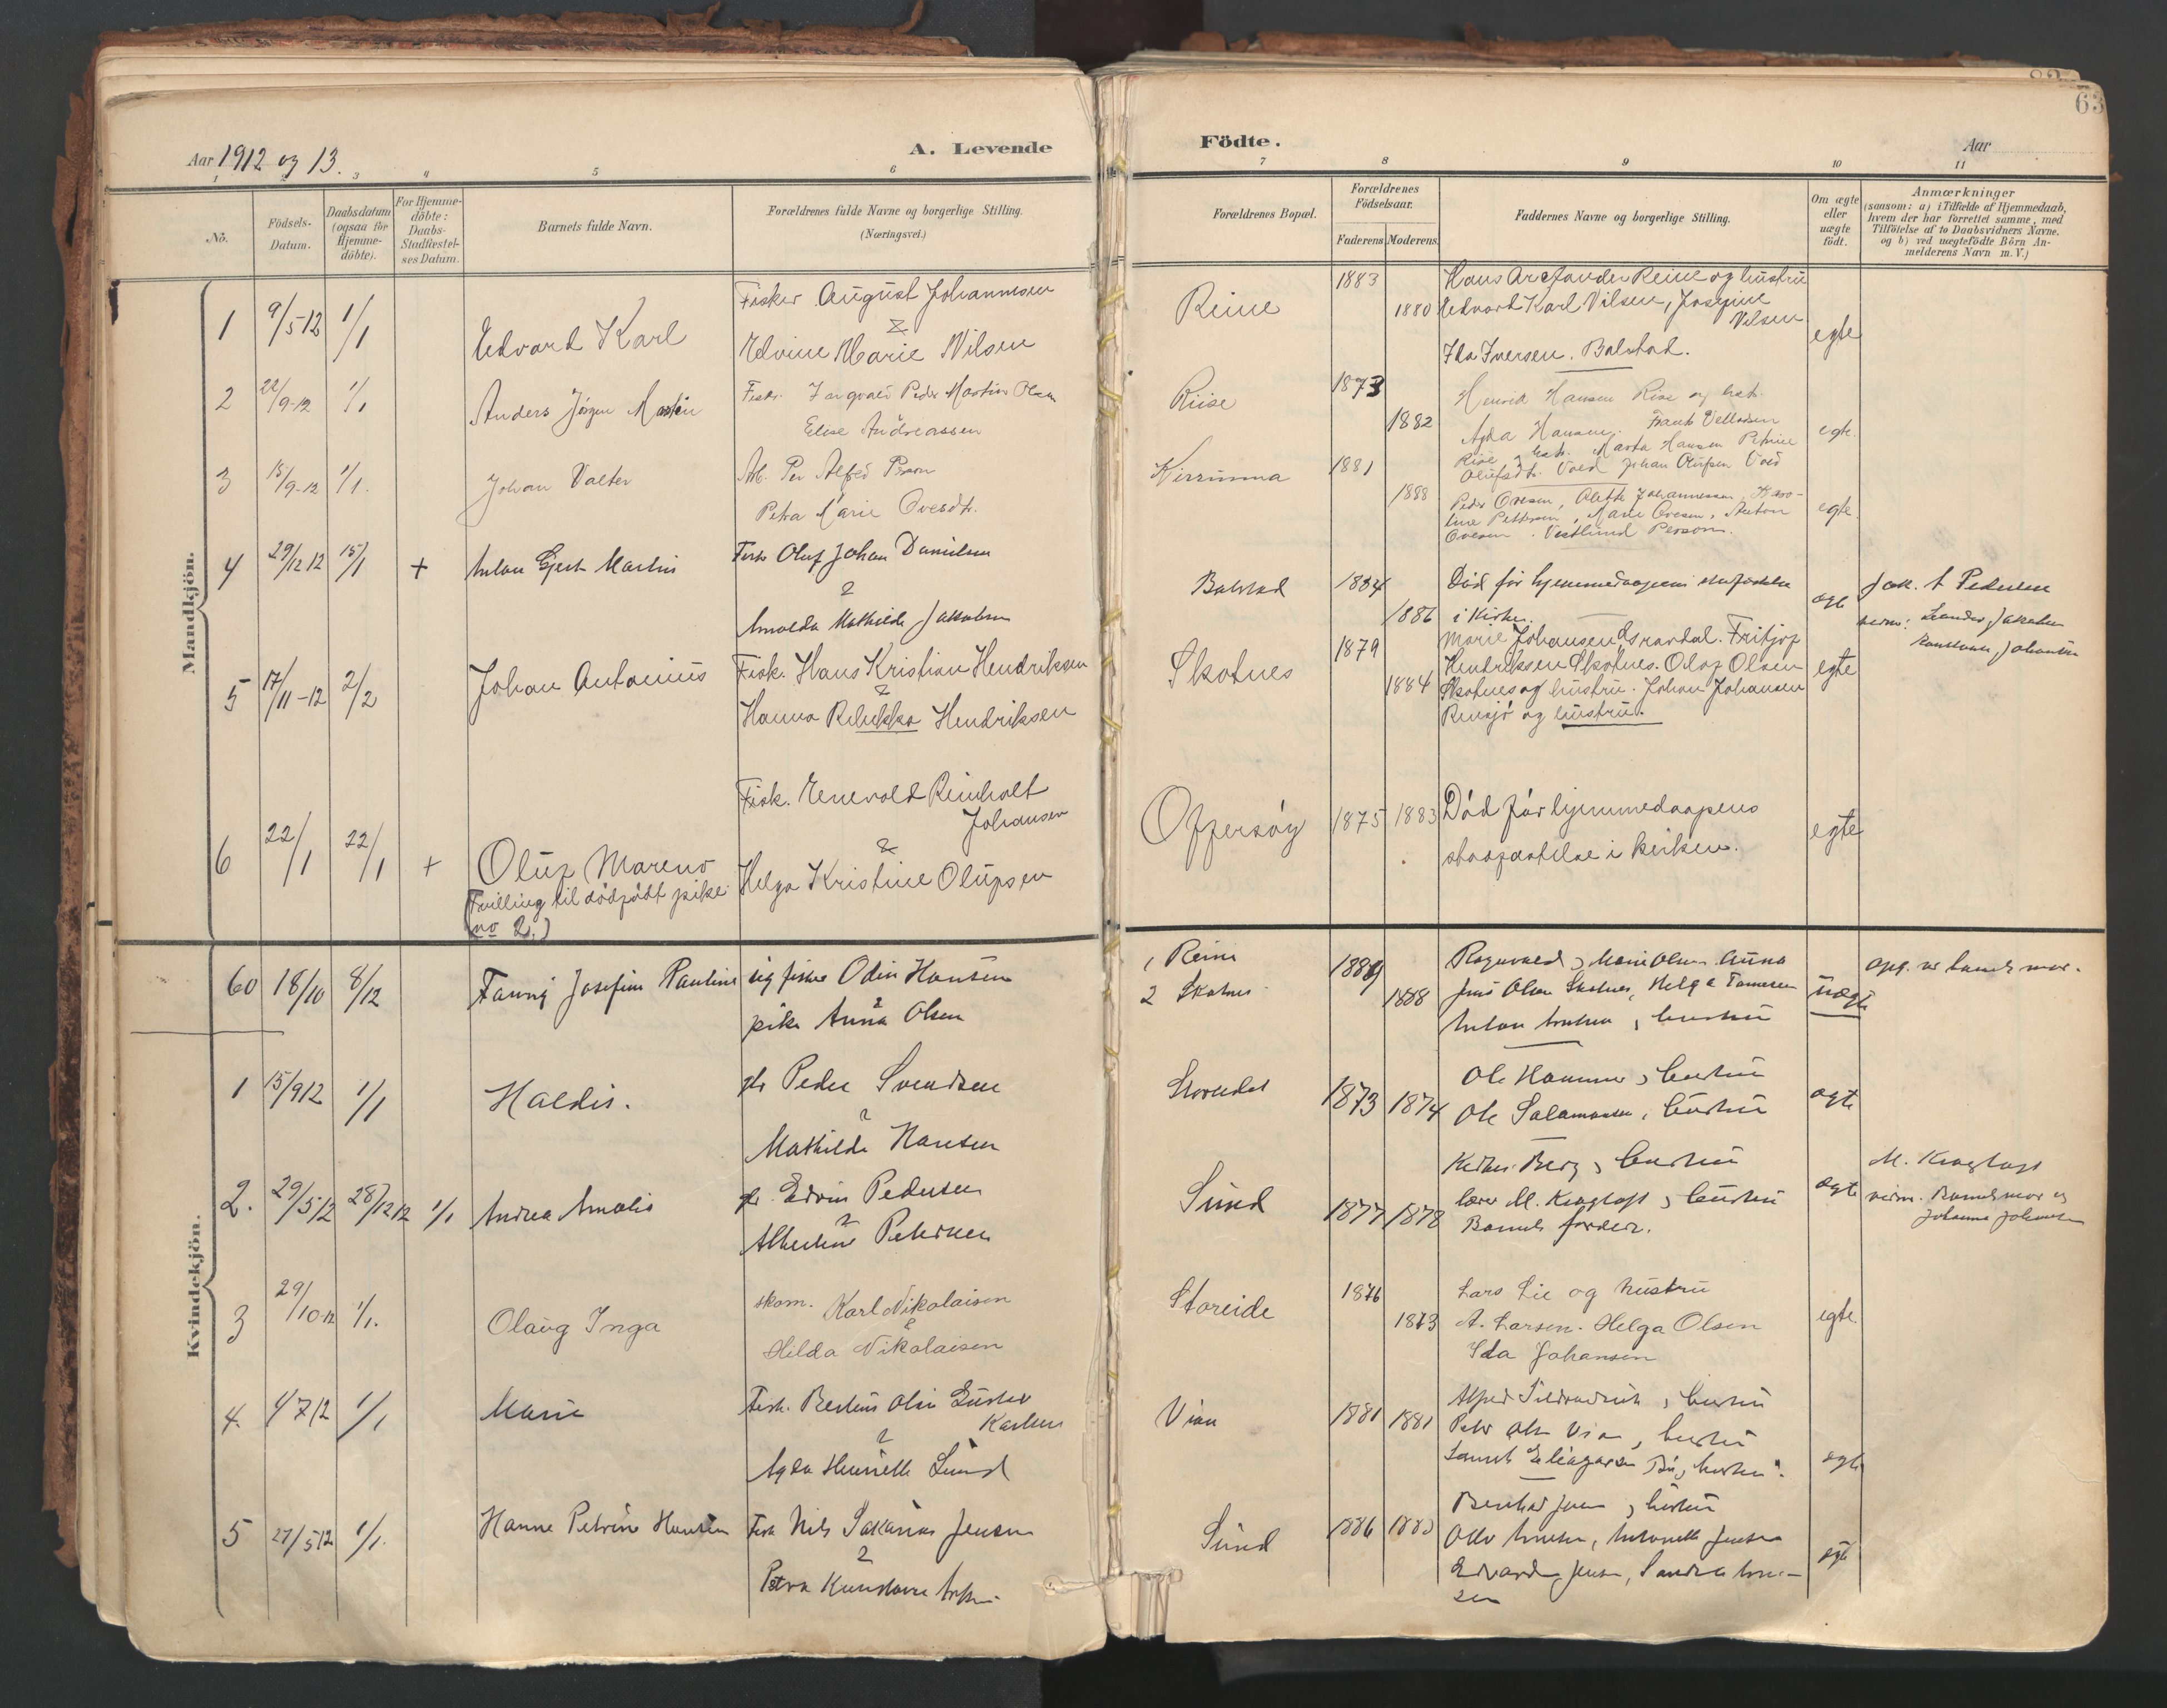 63
Aar 1912 og 13.
A. Levende
Födte.
Aar
1 2 3 4 5 6 7 8 9 10 11
No.
Födsels-Datum.
Daabsdatum (ogsaa for Hjemme-döbte).
For Hjemme-döbte: Daabs-Stadfæstel-ses Datum.
Barnets fulde Navn.
Forældrenes fulde Navne og borgerlige Stilling.
(Næringsvei.)
Forældrenes Bopæl.
Forældrenes Födselsaar.
Faderens
Moderens
Faddernes Navne og borgerlige Stilling.
Om ægte eller uægte födt.
Anmærkninger
(saasom: a) i Tilfælde af Hjemmedaab, hvem der har forrettet samme, med Tilföielse af to Daabsvidners Navne. og b) ved uægtefödte Börn An-melderens Navn m. V.)
Mandkjön.
1 9/5 12 1/1 Edvard Karl
Fisker August Johannesen
&
Edvine Marie Nilsen
Reine 1883 1880
Hans Reine og hustru
Edvard Karl Nilsen, Josefine
Nilsen
Ida Iversen. Balstad.
egte
2 22/9-12 1/1 Anders Jörgen Martin
Fisk. Ingvald Peder Martin Olsen
Elise Andreassen
Riise 1873 1882
Henrik Hansen Rise og
Agda Hansen. Frants
Rise og Marta Hansen Petrine
Olufsdt. Vold Johan Olufsen Vold
egte.
3 15/9-12 1/1. Johan Valter
Arb. Per Alfred
Petra Marie Ovesdt.
1881 1888
Peder Ovesen, Aletta Johannessen, Karo-
line Pettersen, Marie Ovesen, Anton
Ovesen. Vestlund Persson.
egte.
4 29/12 12 15/1 + Anton Gjert Martin
Fisk Oluf Johan Danielsen
&
Arnolda Mathilde Jakobsen
Balstad 1884 1886
Död för hjemmedaapens stadfæstelse
i kirken.
egte
Jak. A Pedersen
vidn: Leander Jakobsen
5 17/11-12 2/2 Johan Antonius
Fisk. Hans Kristian Hendriksen
&
Hanna Rebekka Hendriksen
Skotnes 1879 1884
Marie Johansen. Fritjof
Hendriksen Skotnes. Olaf Olsen
Skotnes og hustru. Johan Johansen
og hustru.
egte
6 22/1 22/1 + Oluf Mareno
(Tvilling til dödfödt pike
no 2.)
Fisk. Enevold Reinholt
Johansen
&
Helga Kristine Olufsen
Offersöy 1875 1883
Död för hjemmedaapens
stadfæstelse i kirken.
egte
Kvindekjön.
60 18/10 8/12 Fanny Josefine Pauline
ug fisker Odin Hansen
&
pike Anna Olsen
1 Reine
2 Skotnes
1889 1888
Ragnvald, Marie Olsen. Anna
Jens Olsen Skotnes, Helga
Anton, hustru
uegte
opg. av barnets mor.
1 15/9 12 1/1 Haldis.
Peder Svendsen
&
Mathilde Hansen
Storeidet 1873 1874
Ole Hammer, hustru
Ole Salamonsen, hustru
egte
2. 29/5 12 28/12 12 1/1 Andrea Amalie
Edvin Pedersen
&
Albertine Petersen
Sund 1877 1878
Berg, hustru
lærer M. Kragtoft, hustru
Barnets foreldr.
egte
M. Kragtoft
vidn. Barnets mor og
Johanna Johansen
3 29/10 12 1/1. Olaug Inga
skom. Karl Nikolaisen
&
Hilda Nikolaisen
Storeide 1876 1873
Lars Lie og hustru
A. Larsen. Helga Olsen
Ida Johansen
egte.
4. 4/7 12 1/1 Marie
Fisk. Bertinus Olai Gustav
Karlsen
&
Agda Henriette Sund
Vian 1881 1881
Alfred, hustru
Peder Olsen Vian, hustru
egte
5 27/5 12 1/1. Hanne Petrine Hansine
Fisk Nils Sakarias Jensen
&
Petra
Sund 1886
Jensen, hustru
Otto, Antonette Jensen
Edvard Jensen, Sandra
sen
egte